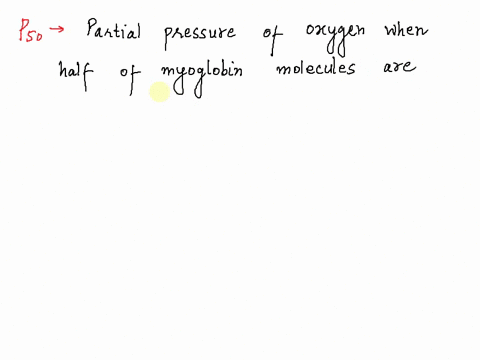 P50 → Partial pressure of oxygen when
half of myoglobin molecules are